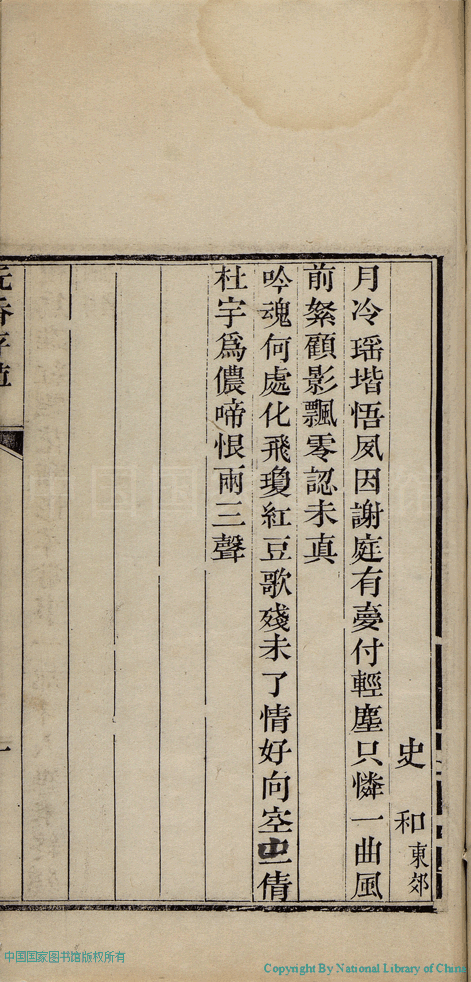 史 和 東郊
月冷瑶堦悟夙因謝庭有夢付輕塵只憐一曲風
前絮顧影飄零認未真
吟魂何處化飛瓊紅豆歌殘未了情好向空山倩
杜宇爲儂啼恨兩三聲
中国国家图书馆版权所有
Copyright By National Library of China